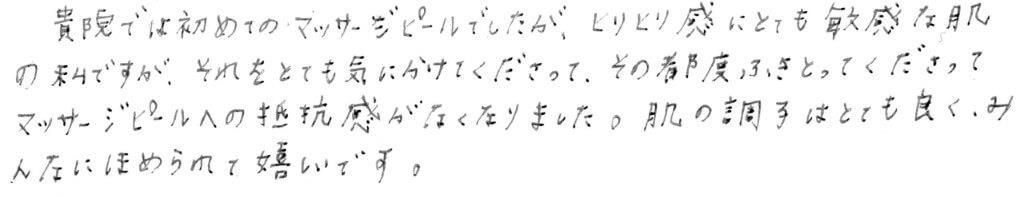 貴院では初めてのマッサージピールでしたが、ヒリヒリ感にとても敏感な肌
の私ですが、それをとても気にかけてくださって、その都度、ふきとってくださって
マッサージピールへの抵抗感がなくなりました。肌の調子はとても良く、み
んなにほめられて嬉しいです。